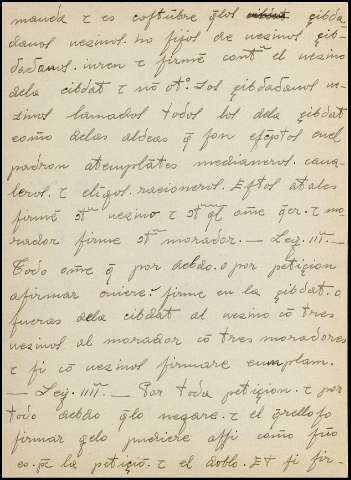 manda τ es costũbre q̃los çibda
danos uezinos. no fijos de uezinos çib-
dadanos. iuren τ firmẽ contᵃ el uezino
dela cibdat τ no otᵒ. Los çibdadanos ue-
zinos lamados todos los dela çibdat
como delas aldeas q̃ son escp̃tos enel
padron atemplãtes medianeros. caua-
leros. τ clig̃os. racioneros. Estos atales
firmẽ ɔtᵃ uezino τ ɔtᵃ ql̃ om̃e q̃er. τ mo-
rador firme ɔtᵃ morador. — Ley. IIIᵃ. —
Todo om̃e q̃ por debdo. o por petiçion
afirmar ouiere. firme en la çibdat. o
fueras dela cibdat al uezino cõ tres
uezinos al morador cõ tres moradores
τ si cõ uezinos firmare cumplam.
— Ley. IIIIᵃ. — Por toda petiçion. τ por
todo debdo q̃lo negare. τ el q̃relloso
firmar gelo pudiere assi como fũo
es. pe la petiçiõ. τ el doblo. Et si fir-